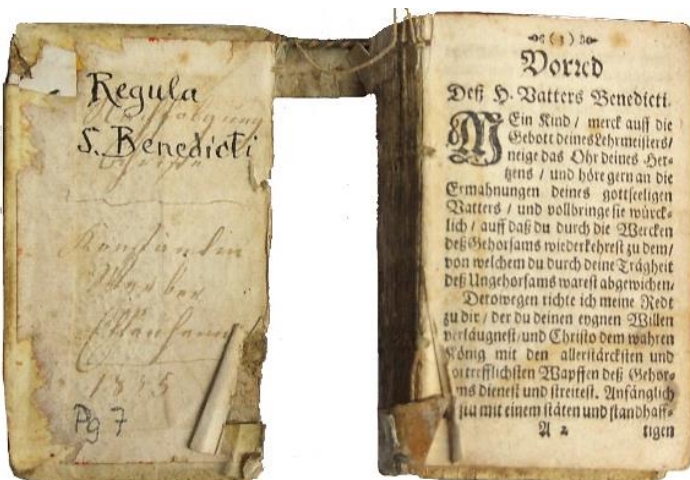 Regula
S. Benedicti
1845
Pg 7
(3)
Vorred
Deß H. Vatters Benedicti.
MEin Kind / merck auff die
Gebott deines Lehrmeisters/
neige das Ohr deines Her-
tzens / und höre gern an die
Ermahnungen deines gottseeligen
Vatters / und vollbringe sie würck-
lich / auff daß du durch die Wercken
deß Gehorsams wiederkehrest zu dem/
von welchem du durch deine Trägheit
deß Ungehorsams warest abgewichen/
Derowegen richte ich meine Redt
zu dir / der du deinen eygnen Willen
verläugnest/und Christo dem wahren
König mit den allerstärcksten und
vortrefflichsten Wapffen deß Gehor-
dienest und streitest. Anfänglich
mit einem stäten und standhaff-
A 2 tigen